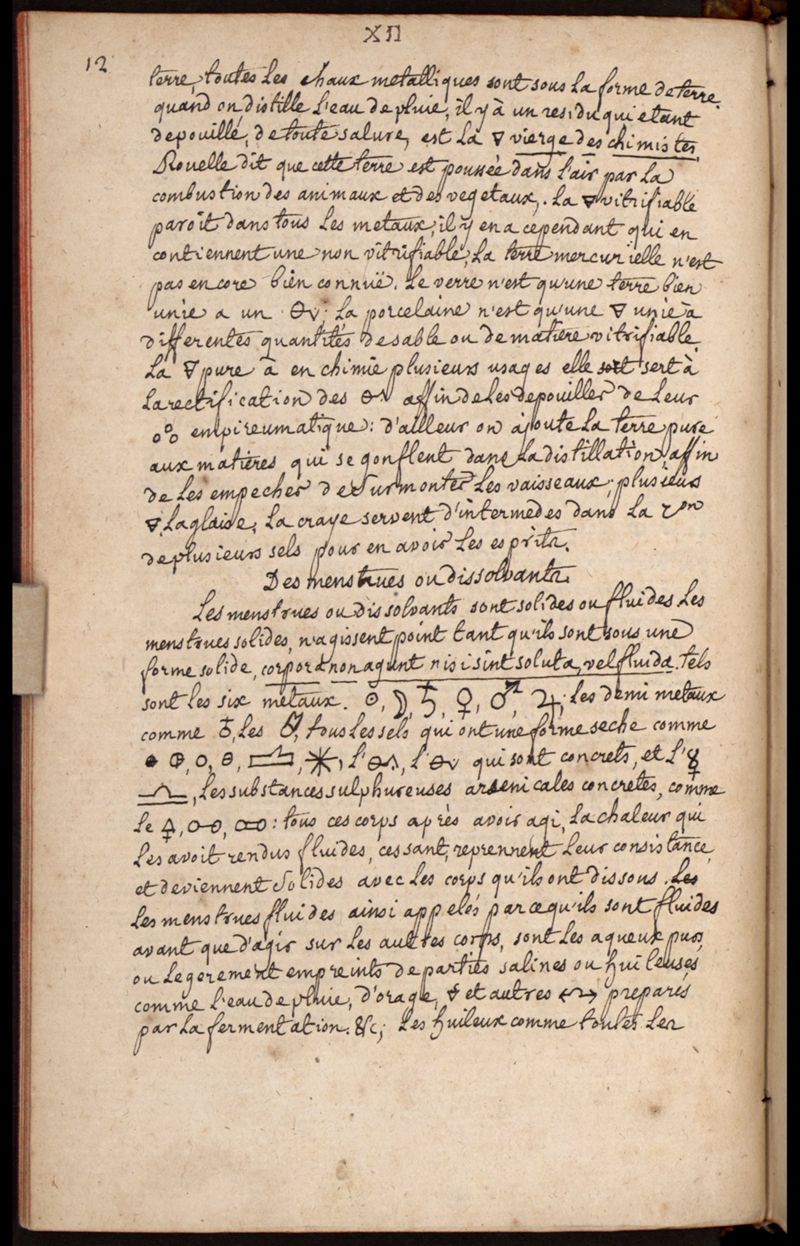 XII
12
terre, toutes Les chaux metalliques sont sous La forme de terre
quand on distille L'eau de pluie, il y à un residu qui etant
depouillé, de toute salure, est La 🜃 vierge des chimistes,
Rouelle dit que cette terre est poussée dans l'air par La
combustion des animaux et des vegetaux,. La 🜃 vitrifiable
paroît dans tous Les metaux, il y en a cependant qui en
contiennent une non vitrifiable; La terre mercurielle n'est
pas encore bien connuë. Le verre n'est qu'une terre bien
unie a un 🜔v; La porcelaine n'est qu'une 🜃 unie à
differentes quantités de sable ou de matiere vitrifiable.
La 🜃 pure a en chimie plusieurs usages elle sert à
La rectification des affin de Les depouiller de Leur
empireumatique: d'ailleur on ajoute La terre pure
aux matieres qui se gonflent dans La distillation, affin
de Les empecher de surmonter Les vaisseaux; plusieurs
🜃 La glaise, La craye servent d'intermedes dans La
de plusieurs sels pour en avoir Les esprits.
Des menstrues ou dissolvants.
Les menstrues ou dissolvants sont solides ou fluides Les
menstrues solides, n'agissent point tant qu'ils sont sous une
forme solide, corpora non agunt nisi sint soluta, vel fluida. tels
sont Les six metaux. ☉, ☽, ♄, ♀, ♂, ♃; Les demi metaux
comme ♁, Les tous Les sels qui ont une forme seche comme
🜔, ⚹, L' L' qui sont concrets, et L'☿
♎, Les substances sulphureuses arsenicales concretes, comme
Le 🜍, o-o, : tous ces corps après avoir agi, La chaleur qui
Les avoit rendus fluides, cessant, reprennent Leur consistance,
et deviennent Solides avec Les corps qu'ils ont dissous. Les
Les menstrues fluides ainsi appelés parcequ'ils sont fluides
avant que d'agir sur Les autres corps, sont Les aqueux purs
ou Legerement empreints de parties salines ou huileuses
comme L'eau de pluie, d'orage, et autres preparés
par La fermentation. &c; Les huileux comme toutes Les